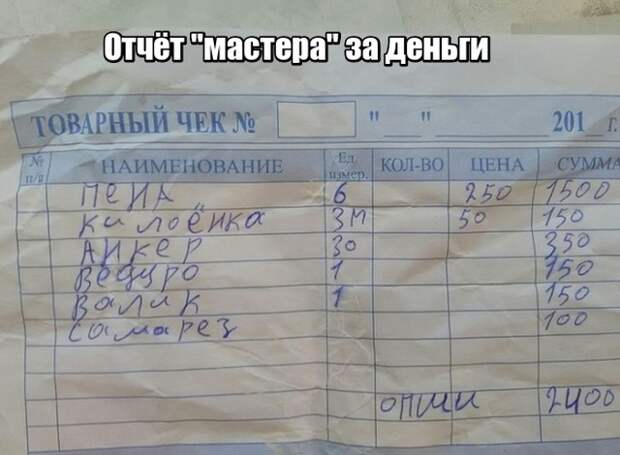 Отчёт "мастера" за деньги
ТОВАРНЫЙ ЧЕК № " " 201 г.
№ п/п НАИМЕНОВАНИЕ Ед. измер. КОЛ-ВО ЦЕНА СУММА
ПЕНА 6 250 1500
КИЛОЁНКА 3М 50 150
АНКЕР 30 350
ВЕДЦРО 1 150
ВАЛИК 1 150
САМАРЕЗ 100
2400